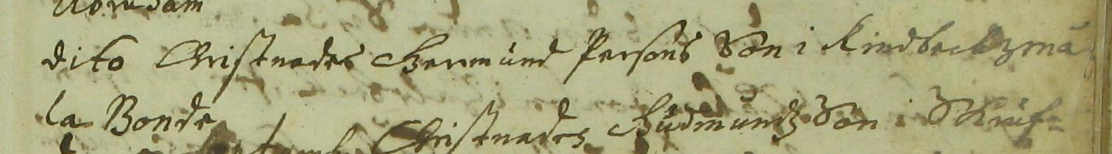 dito Christnades Germund Persons Son i Rindbeckzmå
la Bonde
Christnades Gudmundz Son i Skruf-